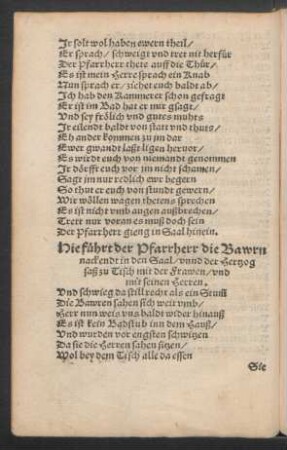 Jr solt wol haben ewern theil/
Er sprach/ schweigt vnd tret nit herfür
Der Pfarrherr thete auff die Thür/
Es ist mein Herre sprach ein Knab
Nun sprach er/ ziehet euch baldt ab/
Ich hab den Kammerer schon gefragt
Er ist im Bad hat er mir gsagt/
Vnd sey frölich vnd gutes muhts
Jr eilendt baldt von statt vnd thuts/
Eh ander kommen zu im dar
Ewer gwandt laßt ligen hervor/
Es wirdt euch von niemandt genommen
Jr dörfft euch vor im nicht schamen/
Sagt im nur redlich ewr begern
So thut er euch von stundt gewern/
Wir wöllen wagen thetens sprechen
Es ist nicht vmb augen außbrechen/
Trett nur voran es muß doch sein
Der Pfarherr gieng in Saal hinein.
Hie führt der Pfarrherr die Bawrn
nackendt in den Saal/ vnnd der Hertzog
saß zu Tisch mit der Frawen/ vnd
mit seinen Herren.
Vnd schwieg da still recht als ein Stuñ
Die Bawren sahen sich weit vmb/
Herr nun weis vns baldt wider hinauß
Es ist kein Badstub inn dem Hauß/
Vnd wurden vor engsten schwitzen
Da sie die Herren sahen sitzen/
Wol bey dem Tisch alle da essen
Sie